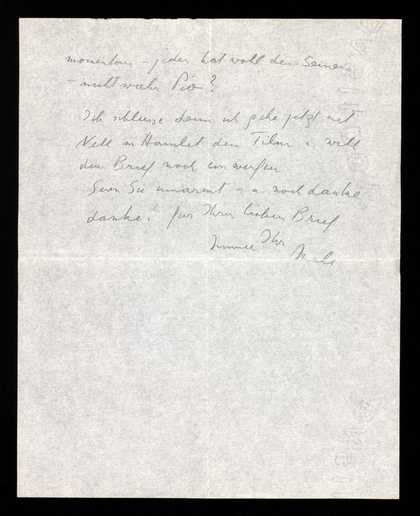 momentan – jeder hat wohl den Seinen
– nicht wahr Pio?
Ich schliesse denn ich gehe jetzt mit
Nell in Hamlet den Film u. will
den Brief noch einwerfen
Seien Sie umarmt u noch danke
danke! für Ihren lieben Brief
Immer Ihr